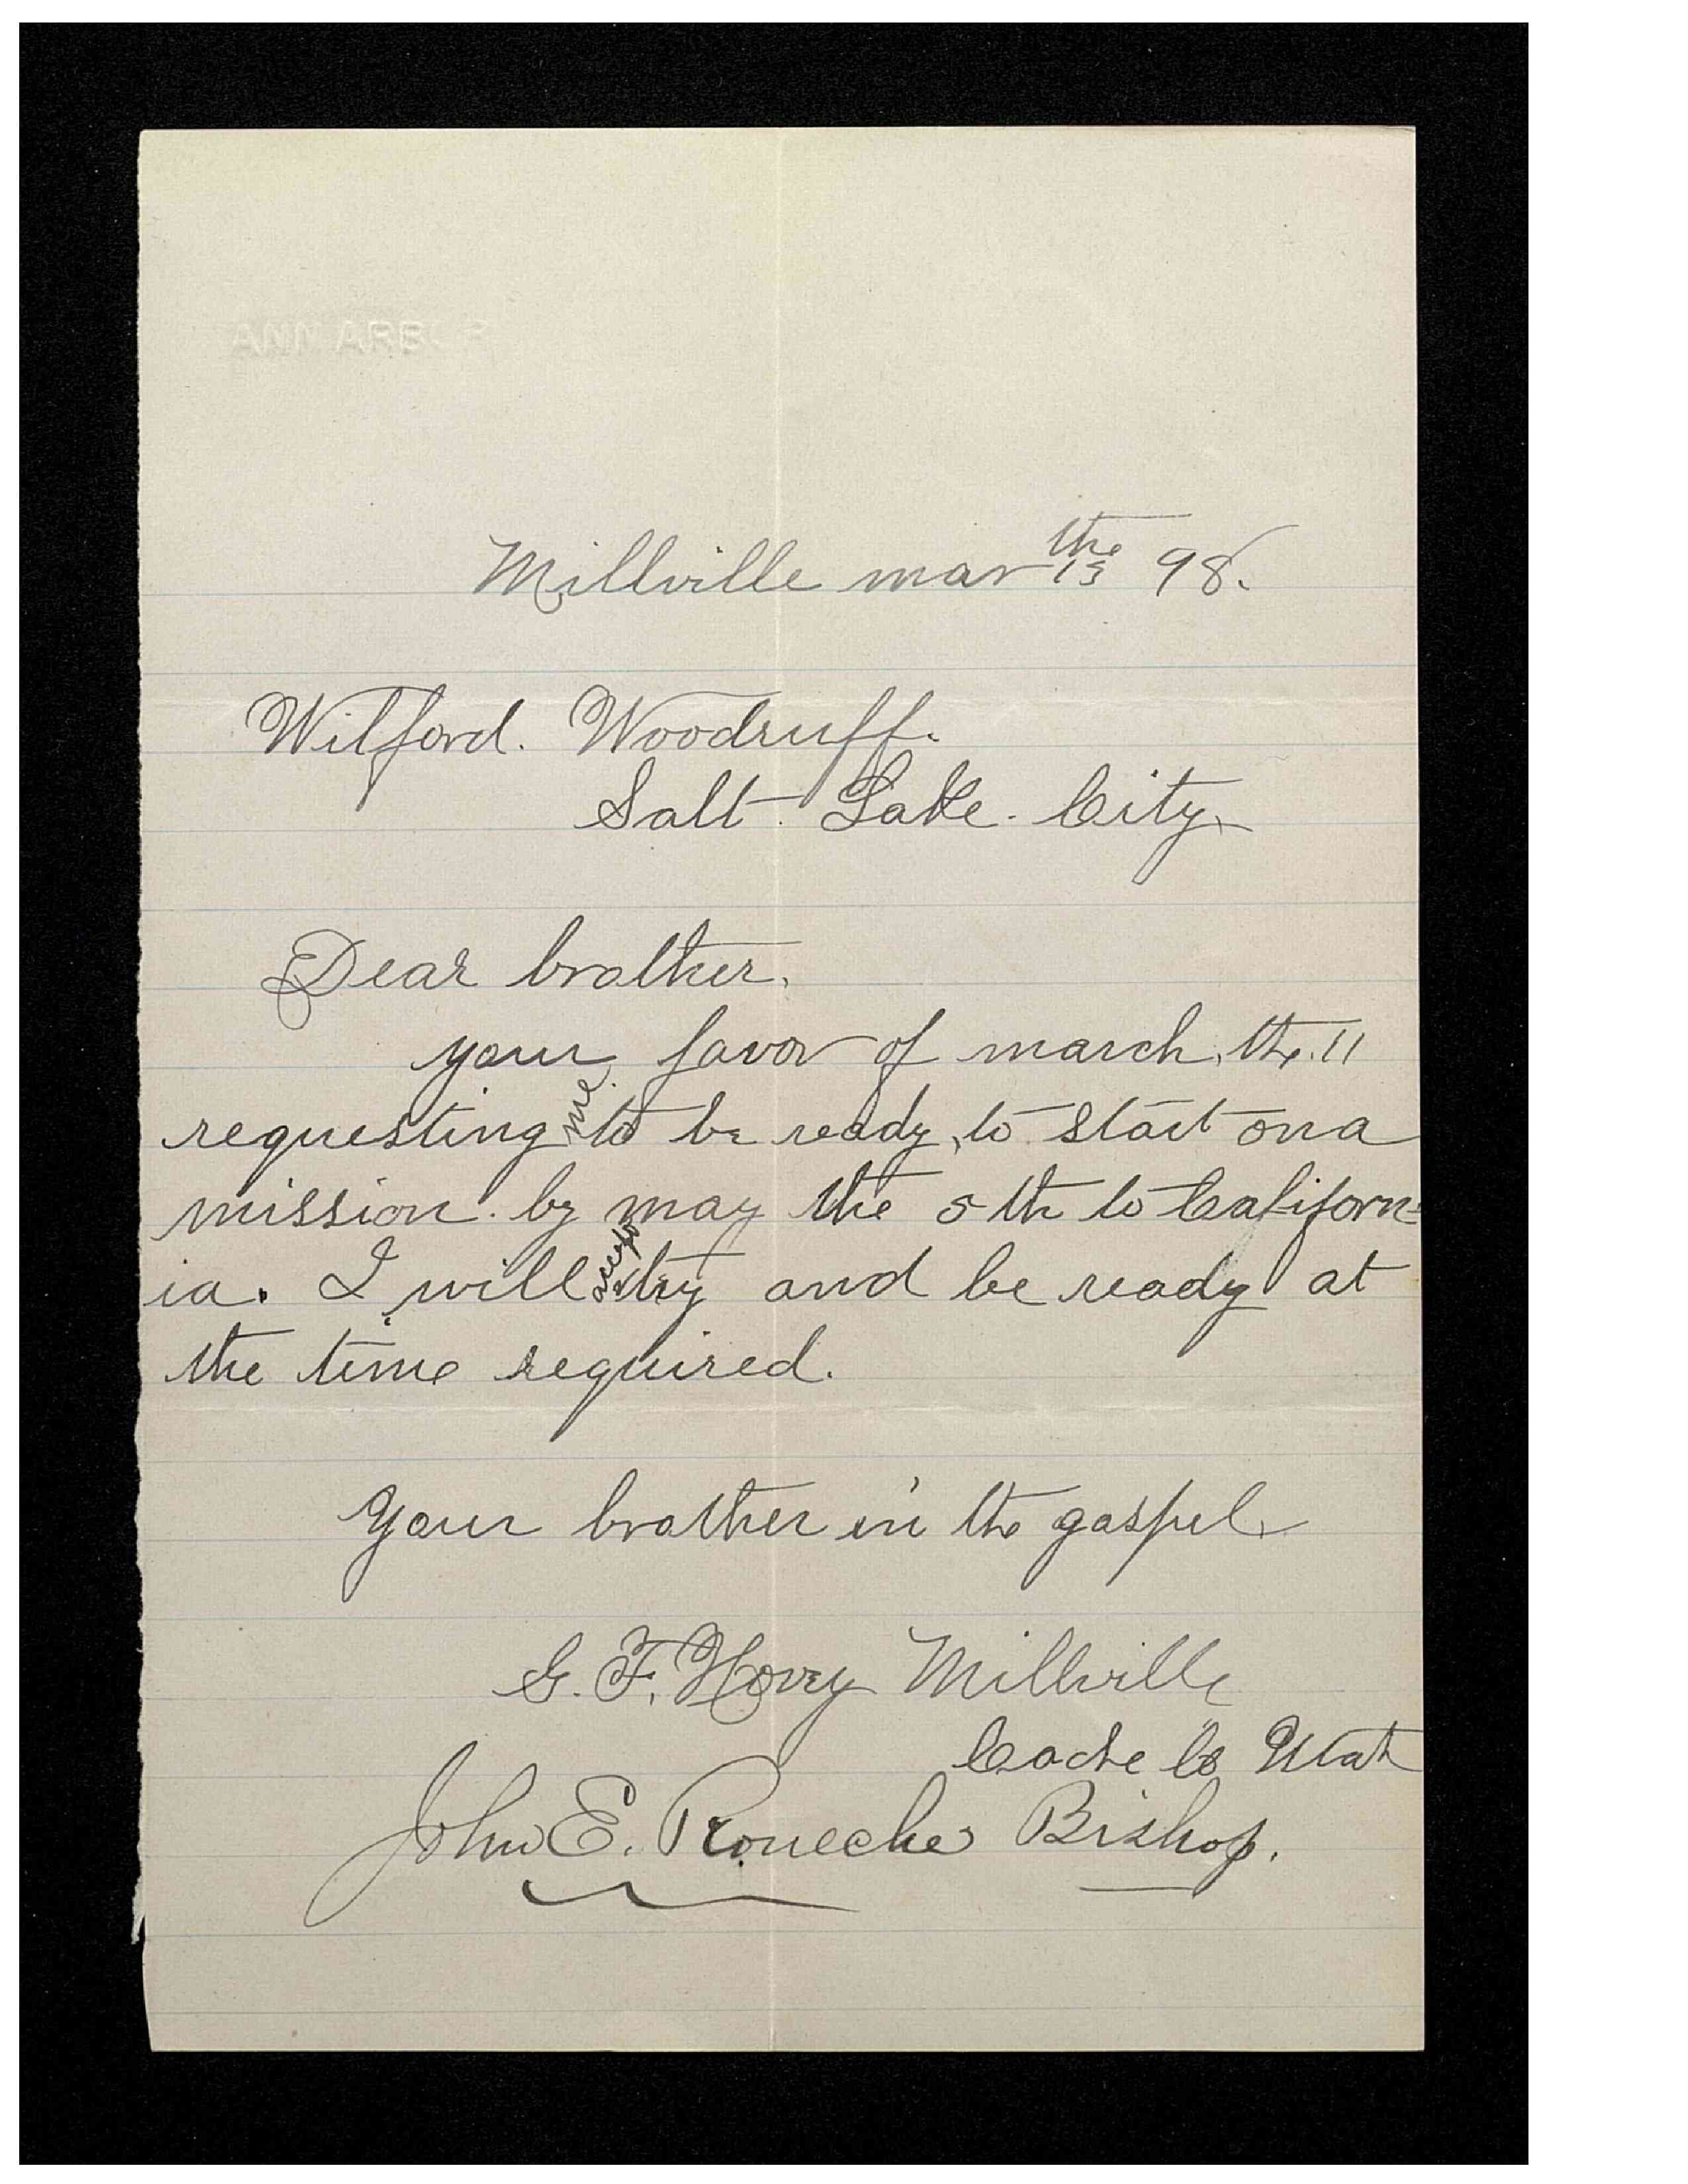 ANN ARBOR
Millville mar the 13 98.
Wilford. Woodruff.
Salt. Lake. City.
Dear brother.
your favor of march. the. 11
requesting me to be ready, to start on a
mission. by may the 5th to Californ=
ia. I will try and be ready at
the time required.
Your brother in the gospel
G. F. Hovey Millville
Cache Co Utah
John E. Bishop.